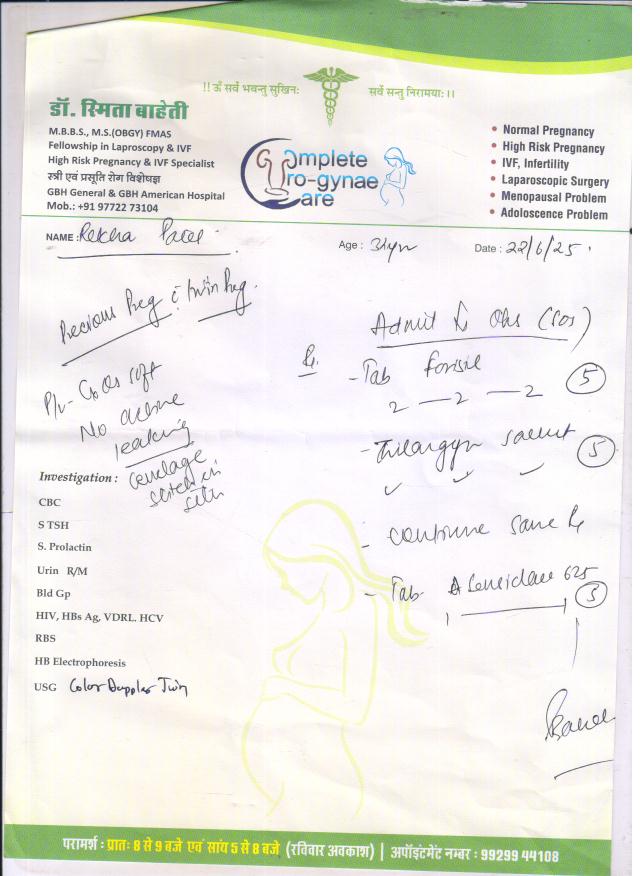 !! ॐ सर्वे भवन्तु सुखिनः सर्वे सन्तु निरामयाः ।।
डॉ. स्मिता बाहेती
M.B.B.S., M.S.(OBGY) FMAS
Fellowship in Laproscopy & IVF
High Risk Pregnancy & IVF Specialist
स्त्री एवं प्रसूति रोग विशेषज्ञ
GBH General & GBH American Hospital
Mob.: +91 97722 73104
Complete
Uro-gynae
Care
• Normal Pregnancy
• High Risk Pregnancy
• IVF, Infertility
• Laparoscopic Surgery
• Menopausal Problem
• Adoloscence Problem
NAME : Rekha Age : 31yrs Date : 22/6/25
Precious Preg c̄ twin Preg.
P/v - Cx Os soft
No active
leaking
cerclage
stitch in
situ
Admit & Obs (SOS)
Rx
- Tab 5
2 — 2 — 2
- sachet 5
- continue same Rx
- Tab 625 3
1 1
Investigation :
CBC
S TSH
S. Prolactin
Urin R/M
Bld Gp
HIV, HBs Ag, VDRL. HCV
RBS
HB Electrophoresis
USG Color Doppler Twin
परामर्श : प्रातः 8 से 9 बजे एवं सांय 5 से 8 बजे (रविवार अवकाश) | अपॉइंटमेंट नम्बर : 99299 44108